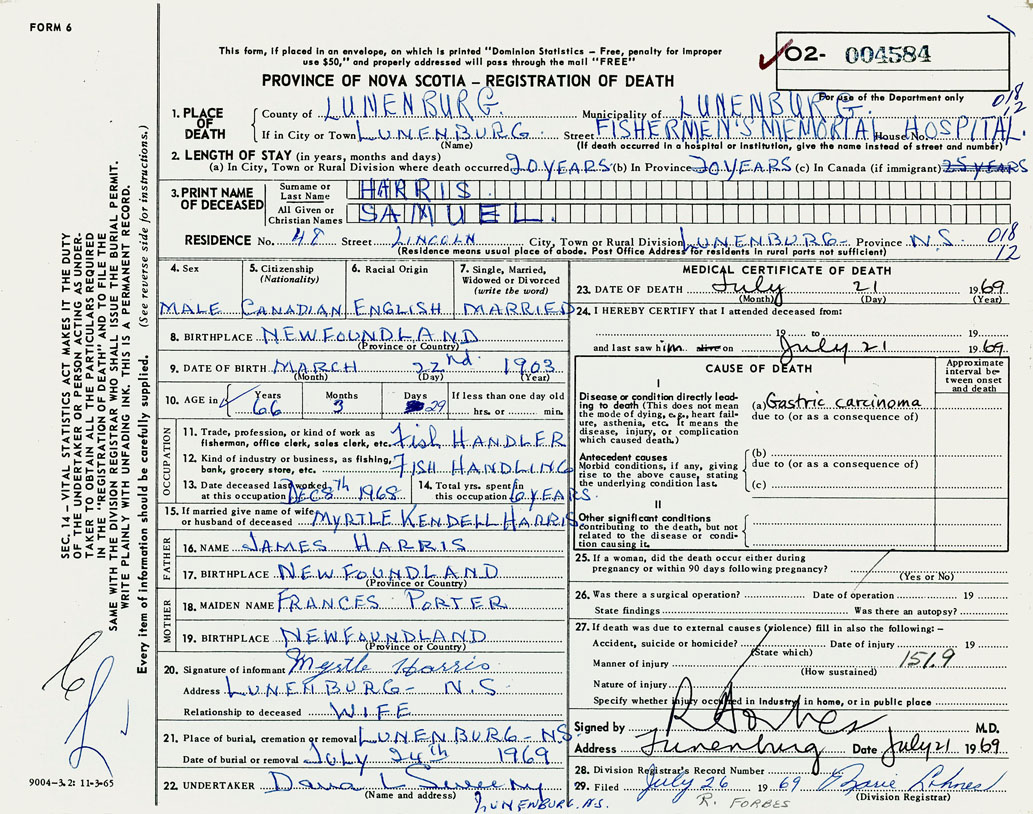 FORM 6
This form, if placed in an envelope, on which is printed "Dominion Statistics – Free, penalty for improper
use $50," and properly addressed will pass through the mail "FREE"
O2- 004584
PROVINCE OF NOVA SCOTIA – REGISTRATION OF DEATH
For use of the Department only
018
12
1. PLACE OF DEATH County of LUNENBURG Municipality of LUNENBURG.
If in City or Town LUNENBURG. Street FISHERMEN'S MEMORIAL House No. HOSPITAL.
(Name) (If death occurred in a hospital or institution, give the name instead of street and number)
2. LENGTH OF STAY (in years, months and days)
(a) In City, Town or Rural Division where death occurred 20 YEARS (b) In Province 20 YEARS (c) In Canada (if immigrant) 25 YEARS
3. PRINT NAME OF DECEASED
Surname or Last Name HARRIS.
All Given or Christian Names SAMUEL.
RESIDENCE No. 48 Street LINCOLN City, Town or Rural Division LUNENBURG- Province N.S. 018
(Residence means usual place of abode. Post Office Address for residents in rural parts not sufficient) 12
4. Sex 5. Citizenship (Nationality) 6. Racial Origin 7. Single, Married, Widowed or Divorced (write the word)
MALE CANADIAN ENGLISH MARRIED
8. BIRTHPLACE NEWFOUNDLAND
(Province or Country)
9. DATE OF BIRTH MARCH 22nd. 1903
(Month) (Day) (Year)
10. AGE in Years Months Days If less than one day old
66 3 29 hrs. or min.
OCCUPATION
11. Trade, profession, or kind of work as
fisherman, office clerk, sales clerk, etc. Fish HANDLER
12. Kind of industry or business, as fishing,
bank, grocery store, etc. FISH HANDLING
13. Date deceased last worked 14. Total yrs. spent in
at this occupation DEC 8th 1968 this occupation 6 YEARS.
15. If married give name of wife
or husband of deceased MYRTLE KENDELL HARRIS
FATHER
16. NAME JAMES HARRIS
17. BIRTHPLACE NEWFOUNDLAND
(Province or Country)
MOTHER
18. MAIDEN NAME FRANCES PORTER
19. BIRTHPLACE NEWFOUNDLAND
(Province or Country)
20. Signature of informant Myrtle Harris
Address LUNENBURG- N.S.
Relationship to deceased WIFE
21. Place of burial, cremation or removal LUNENBURG-NS.
Date of burial or removal JULY 24th 1969
22. UNDERTAKER Dana L Sweeny
(Name and address)
LUNENBURG. NS.
MEDICAL CERTIFICATE OF DEATH
23. DATE OF DEATH July 21 1969
(Month) (Day) (Year)
24. I HEREBY CERTIFY that I attended deceased from:
19 to 19
and last saw him alive on July 21 1969.
CAUSE OF DEATH
Approximate interval between onset and death
I
Disease or condition directly leading
to death (This does not
mean the mode of dying, e.g., heart failure,
asthenia, etc. It means the
disease, injury, or complication
which caused death.)
(a) Gastric carcinoma
due to (or as a consequence of)
Antecedent causes
Morbid conditions, if any, giving
rise to the above cause, stating
the underlying condition last.
(b)
due to (or as a consequence of)
(c)
II
Other significant conditions
contributing to the death, but not
related to the disease or condition
causing it.
25. If a woman, did the death occur either during
pregnancy or within 90 days following pregnancy?
(Yes or No)
26. Was there a surgical operation? Date of operation 19
State findings Was there an autopsy?
27. If death was due to external causes (violence) fill in also the following: –
Accident, suicide or homicide? Date of injury 19
(State which)
Manner of injury 151.9
(How sustained)
Nature of injury
Specify whether injury occurred in Industry, in home, or in public place
Signed by R Forbes M.D.
Address Lunenburg Date July 21 1969
28. Division Registrar's Record Number
29. Filed July 26 1969
(Division Registrar)
R. FORBES
SEC. 14 – VITAL STATISTICS ACT MAKES IT THE DUTY
OF THE UNDERTAKER OR PERSON ACTING AS UNDER-
TAKER TO OBTAIN ALL THE PARTICULARS REQUIRED
IN THE "REGISTRATION OF DEATH" AND TO FILE THE
SAME WITH THE DIVISION REGISTRAR WHO SHALL ISSUE THE BURIAL PERMIT.
WRITE PLAINLY WITH UNFADING INK. THIS IS A PERMANENT RECORD.
Every item of information should be carefully supplied. (See reverse side for instructions.)
9004-3.2: 11-3-65